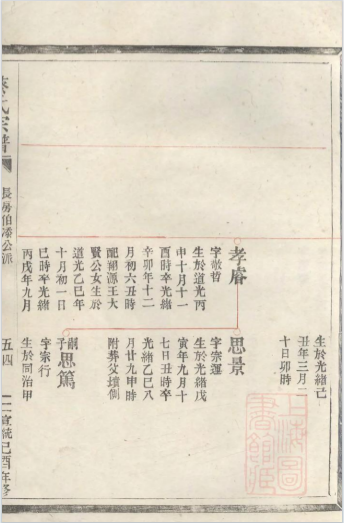 生於光緒己
丑年三月二
十日卯時
孝睿
字敬哲
生於道光丙
申十月十一
酉時卒光緒
辛卯年十二
月初六丑時
配湖源王大
賢公女生於
道光乙巳年
十月初一日
巳時卒光緒
丙戌年九月
思景
字宗運
生於光緒戊
寅年九月十
七日丑時卒
光緒乙巳八
月廿九申時
附葬父墳側
嗣子思篤
字宗行
生於同治甲
氏宗譜
長房伯潘公派
五四
宣統己酉年修
上海圖書館藏